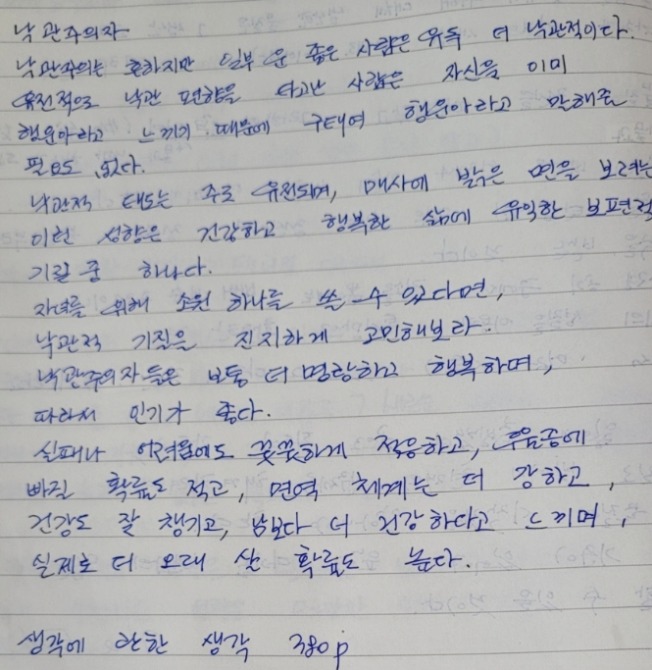 낙관주의자
낙관주의는 흔하지만 일부 운 좋은 사람은 유독 더 낙관적이다.
유전적으로 낙관 편향을 타고난 사람은 자신을 이미
행운아라고 느끼기 때문에 구태여 행운아라고 말해줄
필요도 없다.
낙관적 태도는 주로 유전되며, 매사에 밝은 면을 보려는
이런 성향은 건강하고 행복한 삶에 유익한 보편적
기질 중 하나다.
자녀를 위해 소원 하나를 쓸 수 있다면,
낙관적 기질을 진지하게 고민해보라.
낙관주의자들은 보통 더 명랑하고 행복하며,
따라서 인기가 좋다.
실패나 어려움에도 꿋꿋하게 적응하고, 우울증에
빠질 확률도 적고, 면역 체계는 더 강하고,
건강도 잘 챙기고, 남보다 더 건강하다고 느끼며,
실제로 더 오래 살 확률도 높다.
생각에 관한 생각 380p